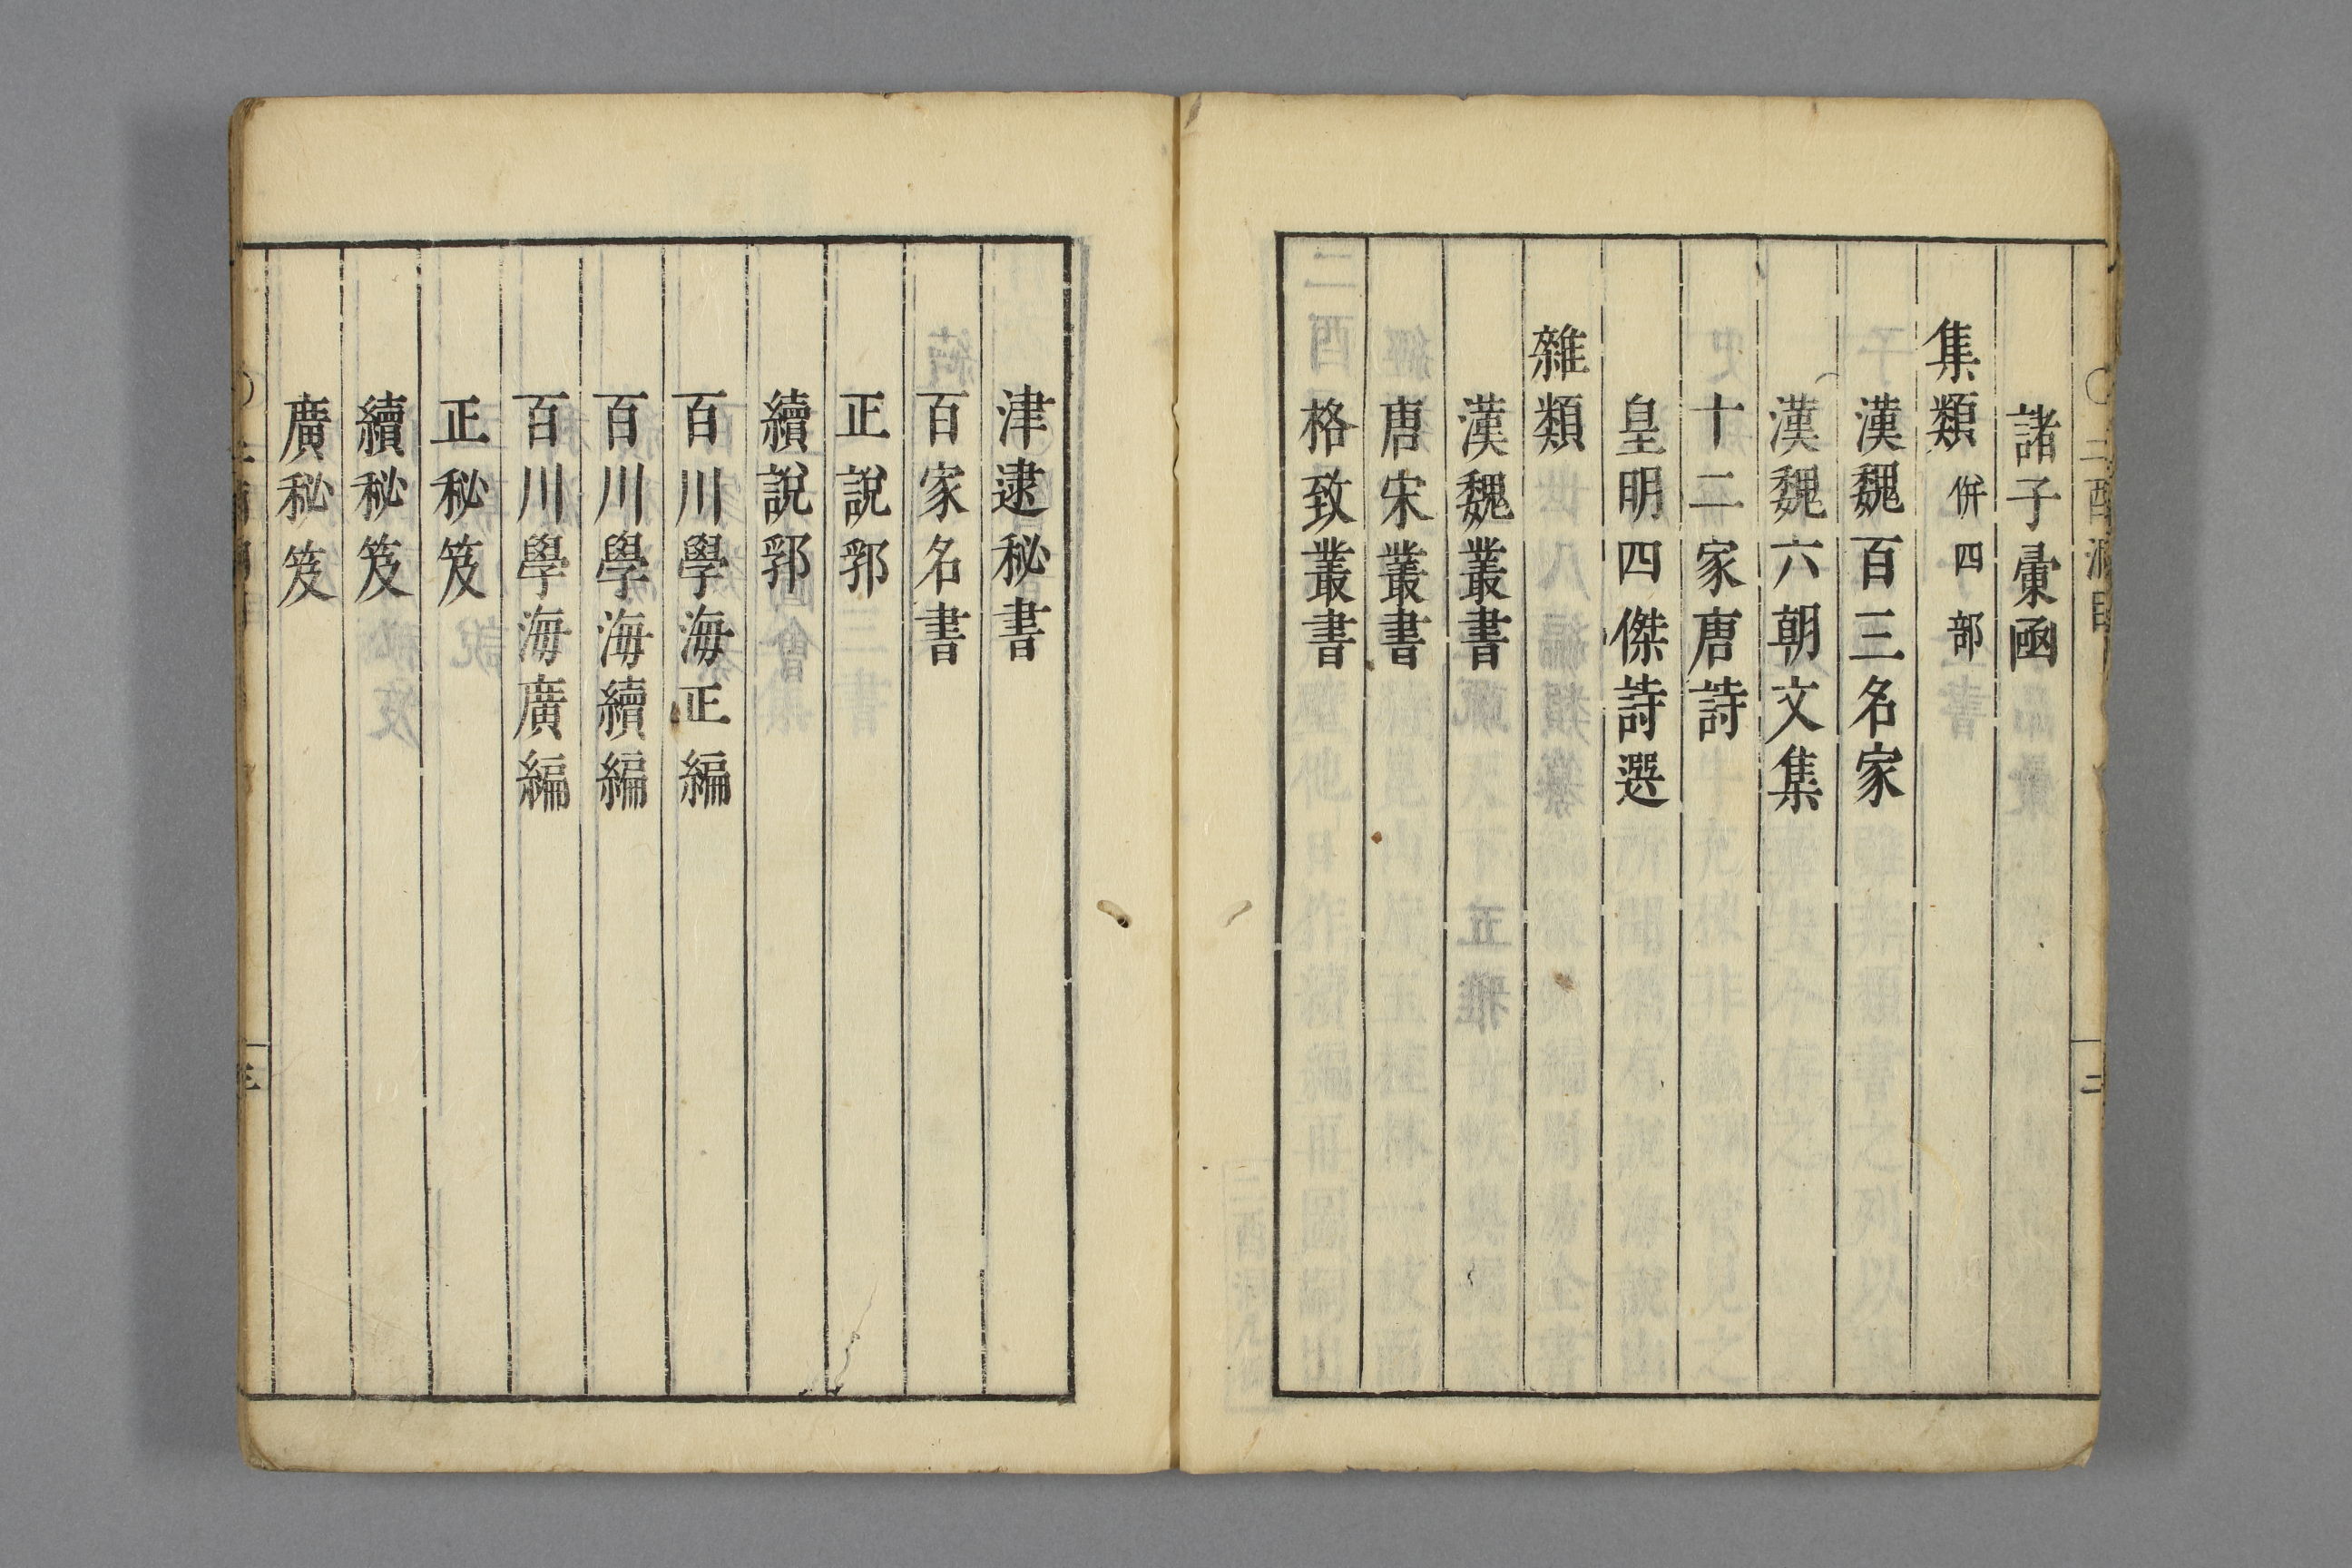 諸子彙函
集類 併四部
漢魏百三名家
漢魏六朝文集
十二家唐詩
皇明四傑詩選
雜類
漢魏叢書
唐宋叢書
格致叢書
津逮秘書
百家名書
正說郛
續說郛
百川學海正編
百川學海續編
百川學海廣編
正秘笈
續秘笈
廣秘笈